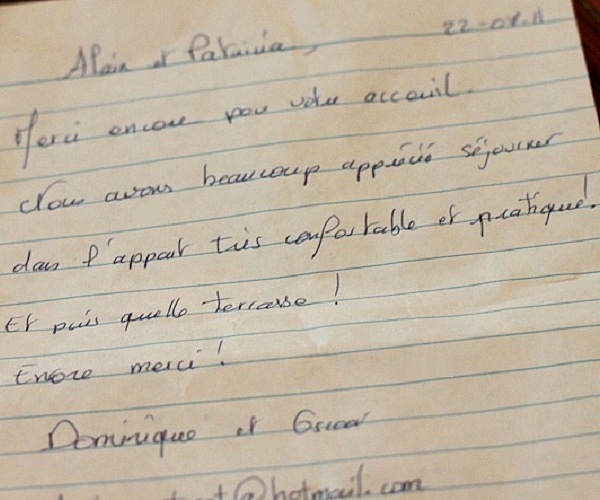 22-07-11
Alain et Patricia,
Merci encore pour votre acceuil.
Nous avons beaucoup apprécié séjourner
dans l'appart très confortable et pratique!
Et puis quelle terrasse !
Encore merci !
Dominique et Oscar
@hotmail.com